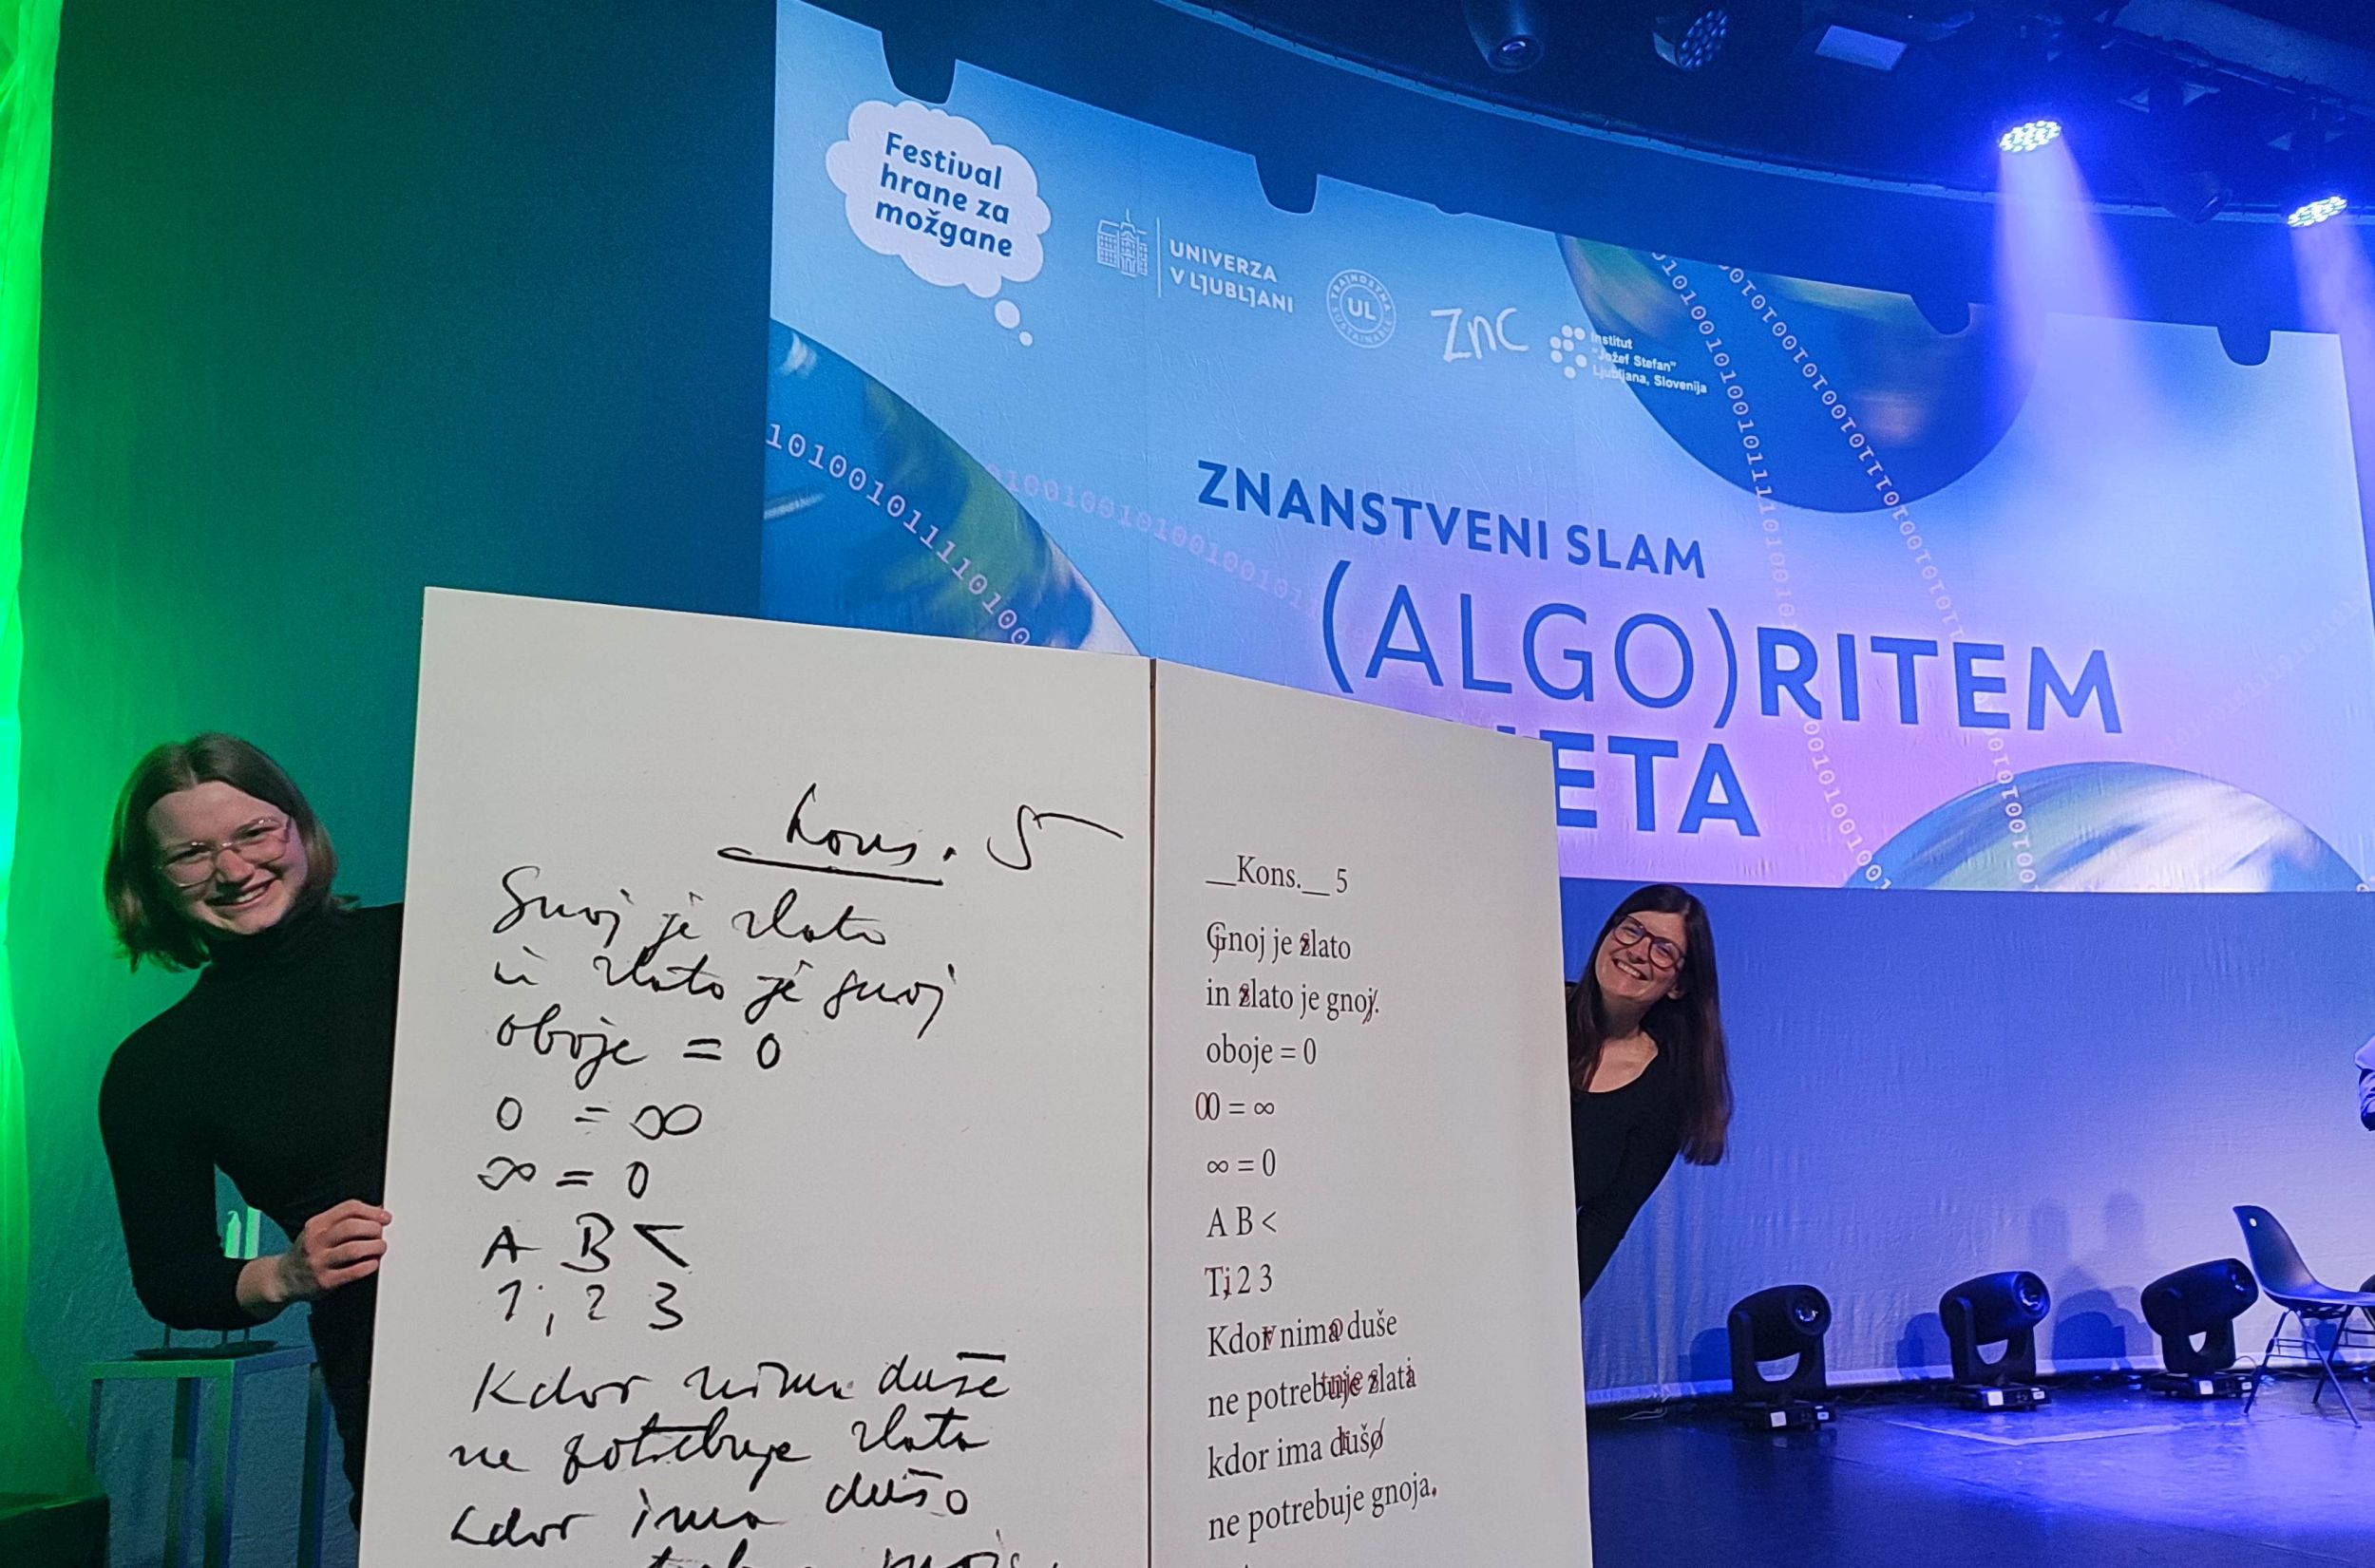 Festival
hrane za
možgane
UNIVERZA
V LJUBLJANI
TRAJNOSTNA
UL
SUSTAINABLE
znc
Institut
"Jožef Stefan"
Ljubljana, Slovenija
ZNANSTVENI SLAM
(ALGO)RITEM
ETA
Kons. 5
Gnoj je zlato
in zlato je gnoj
oboje = 0
0 = ∞
∞ = 0
A B <
1, 2 3
Kdor nima duše
ne potrebuje zlata
kdor ima dušo
__Kons.__ 5
Gnoj je zlato
in zlato je gnoj.
oboje = 0
0 = ∞
∞ = 0
A B <
2 3
Kdor nima duše
ne potrebuje zlata
kdor ima dušo
ne potrebuje gnoja.